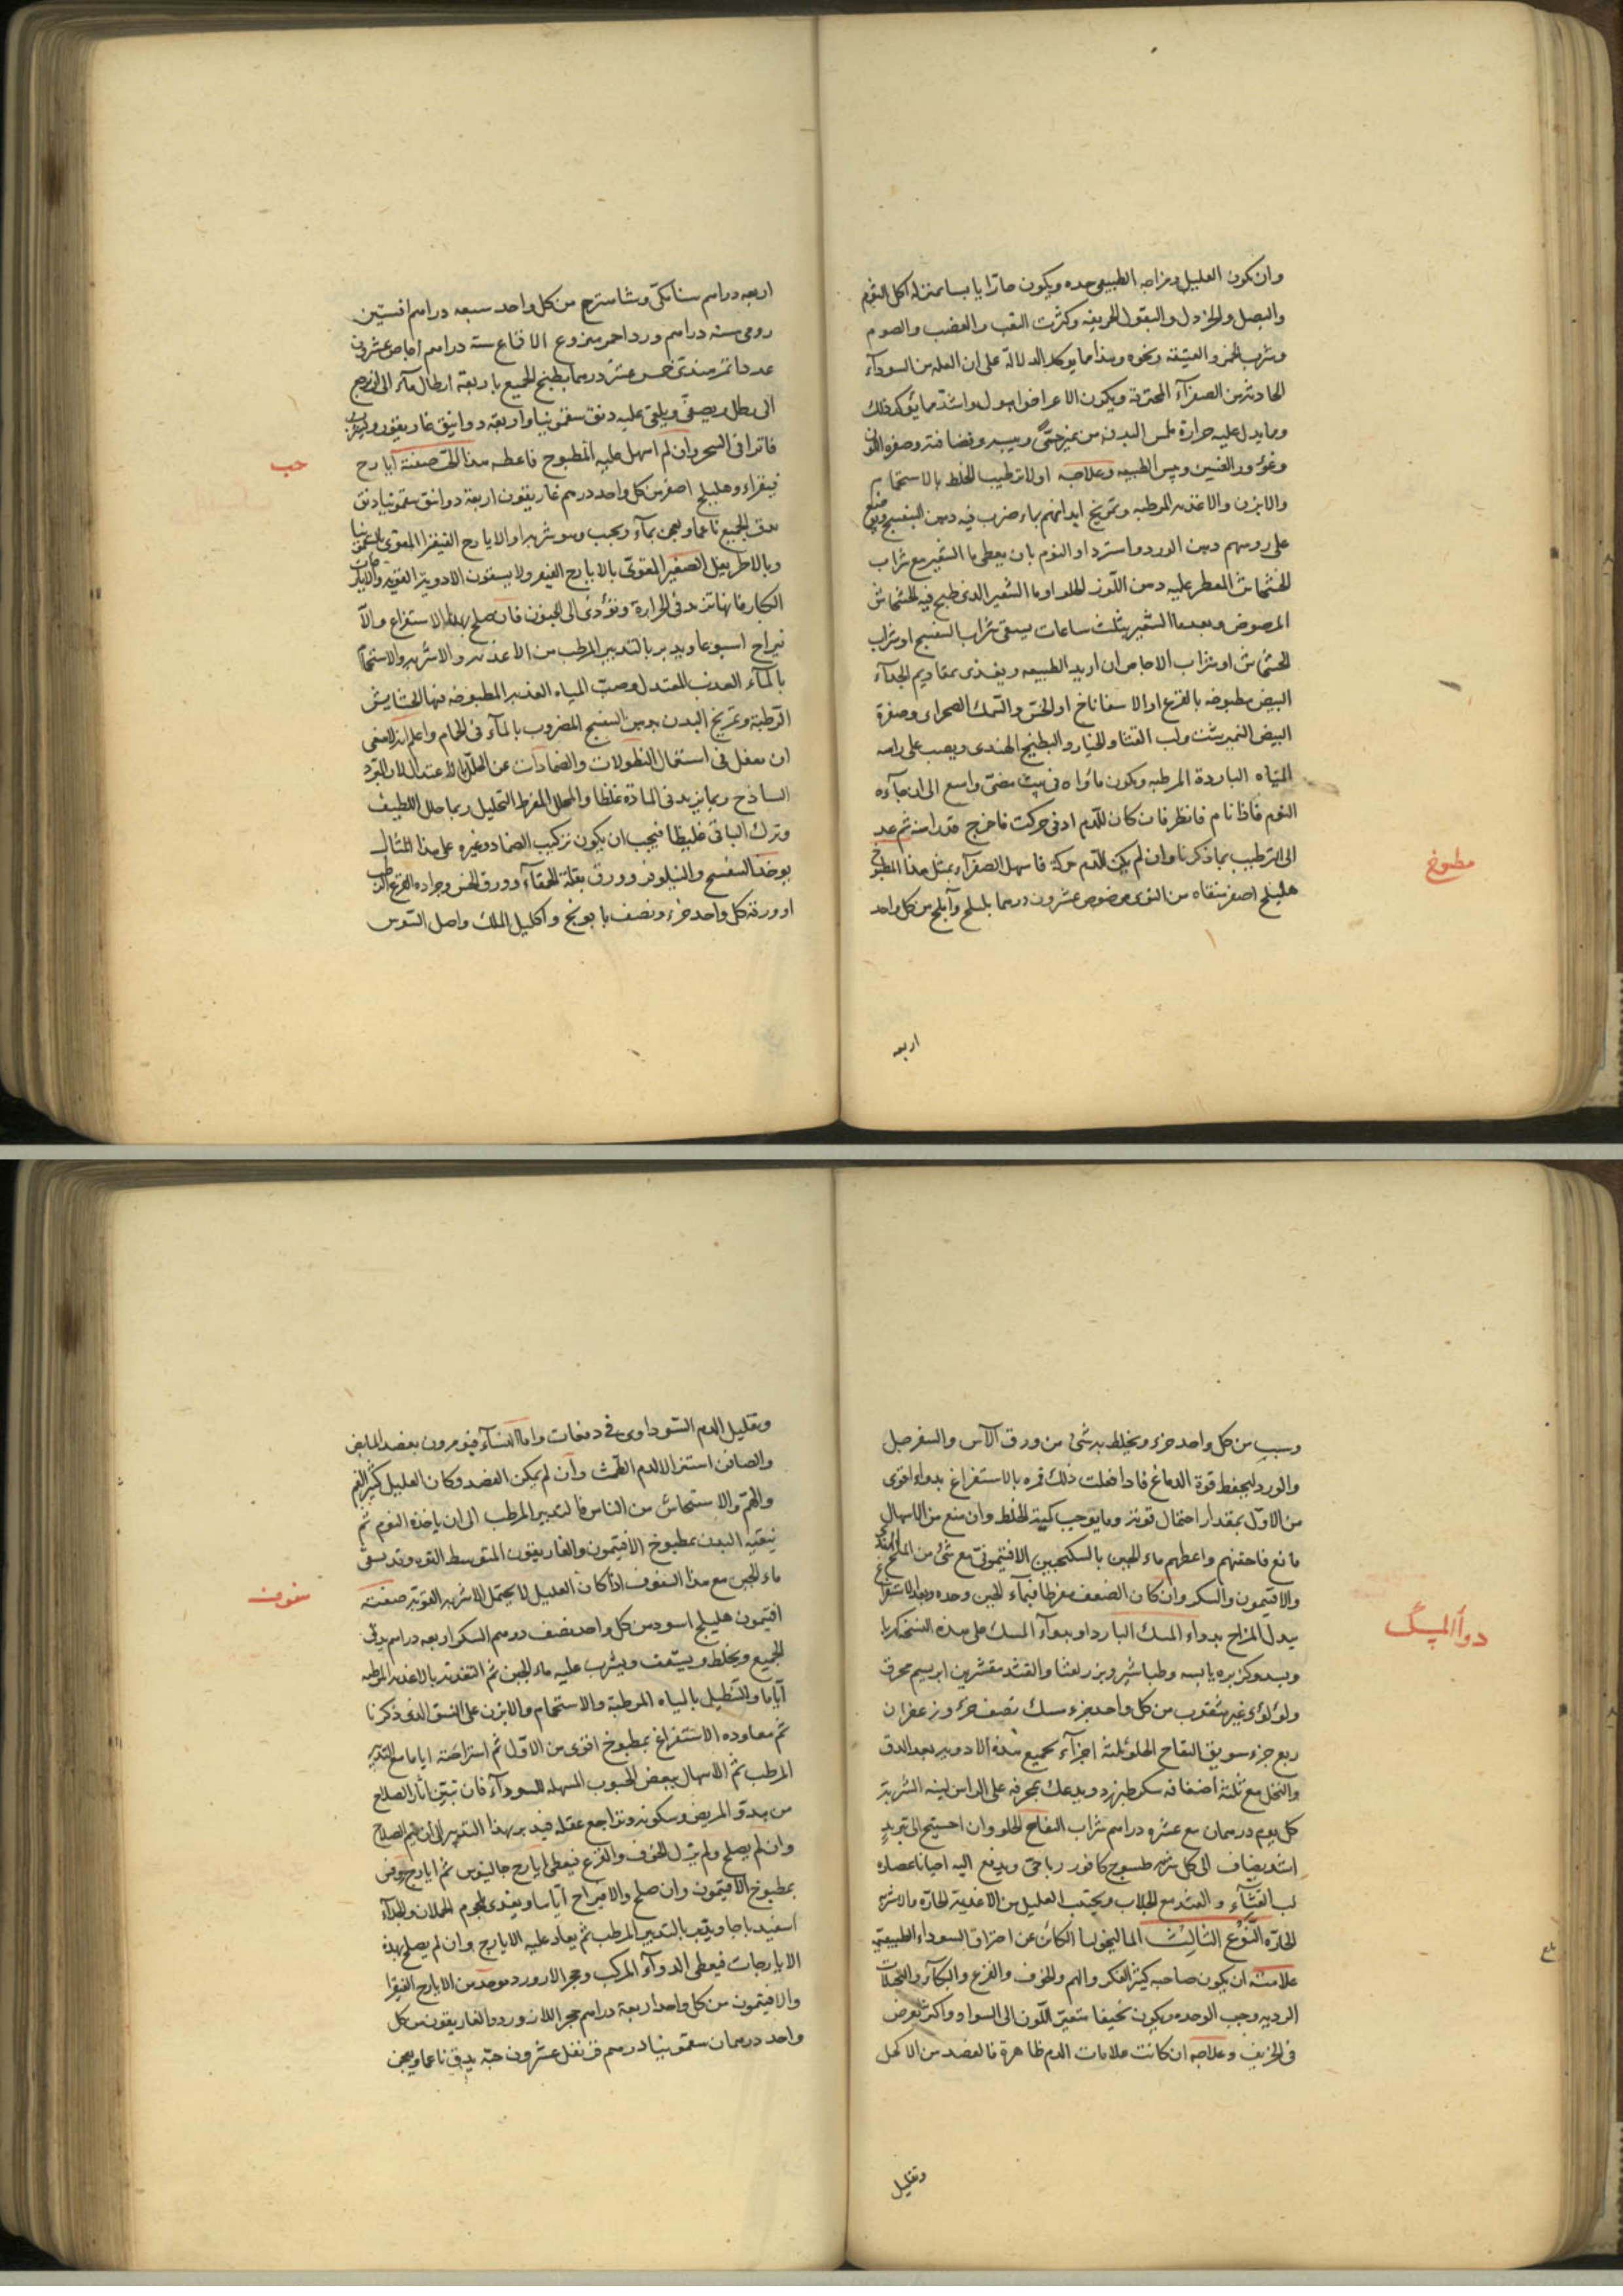 وان يكون العليل ومزاجه الطبيعي حده ويكون حارا يابسا بمنزلة اكل الثوم
والبصل والخردل والبقول الحريفه وكثرت التعب والغضب والصوم
وشرب الخمر والعتيقة ونحوه وهذا مما يوكد الدلالة على ان العله من السوداء
الحادثة من الصفرآء المحترقة ويكون الاعراض اهول واشد مما يؤكد ذلك
وما يدل عليه حرارة ملس البدن من غير حتى ويبسه وقضافته وصفره اللون
وغؤور العينين ويبس الطبيعه وعلاجه اولا ترطيب الخلط بالاستحمام
والابزن والاغذيه المرطبه وتمريخ ابدانهم بماء ضرب فيه دهن البنفسج ويوضع
على روسهم دهن الورد واسترداد النوم بان يعطى ما الشعير مع شراب
الخشخاش المعطر عليه دهن اللوز الحلو او ما الشعير الذى طبخ فيه الخشخاش
المرضوض وبعد ما الشعير بثلث ساعات يسقى شراب البنفسج او شراب
الخشخاش او شراب الاجاص ان اريد الطبيعه ويغذى بمقاديم الجدآء
البيض مطبوخه بالقرع او الاسفاناخ او الخس والسمك الصحراى وصفرة
البيض النمبرشت ولب القثا والخيار والبطيخ الهندى ويصب على راسه
المياه الباردة المرطبه ويكون مأواه فى بيت مضئ واسع الى ان جآءه
النوم فاذا نام فانظر فان كان للدم ادنى حركت فاخرج مقدار منه ثم عد
الى الترطيب بما ذكرنا وان لم يكن للدم حركة فاسهل الصفرآء بمثل هذا المطبوخ
مطبوخ
هليلج اصفر منقاه من النوى مرضوض عشرون درهما بليلج وآملج من كل واحد
اربعه
اربعه دراهم سنا مكى وشاهترج من كل واحد سبعه دراهم افسنتين
رومى سته دراهم ورد احمر منزوع الاقماع ستة دراهم اجاص عشرون
عددا تمر هندى خمس عشر درهما يطبخ الجميع باربعة ارطال مآء الى ان يرجع
الى رطل ويصفى ويلقى عليه دنق سقمونيا واربعة دوانيق غاريقون ويشرب
فاترا فى السحر وان لم اسهل عليه المطبوخ فاعطه هذا الحب صفته آيارج
حب
فيقراء وهليلج اصفر من كل واحد درهم غاريقون اربعة دوانق سقمونيا دنق
يدق الجميع ناعما ويعجن بمآء ويحبب وهو شربه او الايارج الفيقرا المقوى بالسقمونيا
وبالاطريفل الصغير المقوى بالايارج الفيقر ولا يسقون الادوية القويه والايارجات
الكبار فانها تزيد فى الحرارة وتؤدى الى الجنون فان صلح بهذا الاستفراغ والا
فيراح اسبوعا ويدبر بالتدبير المرطب من الاغذيه والاشربه والاستحمام
بالمآء العذب المعتدل وصب المياه العذبه المطبوخه فيها الحشايش
الرطبة وتمريخ البدن بدهن البنفسج المضروب بالمآء فى الحمام واعلم انه لا ينبغى
ان يغفل فى استعمال النطولات والضمادات عن المحلل بالاعتدال لان المبرد
الساذج ربما يزيد فى المادة غلظا والمحلل المفرط التحليل ربما حلل اللطيف
وترك الباقى غليظا فيجب ان يكون تركيب الضماد وغيره على هذا المثال
يوخذ البنفسج والنيلوفر وورق بقلة الحمقآء وورق الخس وجراده القرع الرطب
او ورقه كل واحد جزء ونصف بابونج واكليل الملك واصل السوس
وسبب من كل واحد جزء ويخلط به شئ من ورق الآس والسفرجل
والورد ليحفظ قوة الدماغ فاذا فعلت ذلك فمره بالاستفراغ بدواء اقوى
من الاول بمقدار احتمال قوته وما يوجب كمية الخلط وان منع من الاسهال
مانع فاحقنهم واعطهم ماء الجبن بالسكنجبين الافتيمونى مع شئ من الملح الهندى
والافتيمون والسكر وان كان الضعف مفرطا فبمآء الجبن وحده وبعد الاستفراغ
يبدل المزاج بدواء المسك البارد او بدوآء المسك على هذه النسخه كهربا
دوآ المسك
وبسد وكزبره يابسه وطباشير وبزر القثا والقثد مقشرين ابريسم محرق
ولؤلؤى غير مثقوب من كل واحد جزء مسك نصف جزء وزعفران
ربع جزء سويق التفاح الحلو ثلثة اجزآء يجمع هذه الادويه بعد الدق
والنخل مع ثلثة اضعافه سكر طبرزد ويدعك بمجرفه على الراس لينه الشربة
كل يوم درهمان مع عشره دراهم شراب التفاح الحلو وان احتيج الى تبريد
اشد يضاف الى كل شربه طسوج كافور رباحى ويدفع اليه احيانا عصاره
لب القثآء والقثد مع الجلاب ويجتنب العليل من الاغذية الحارة والاشربه
الحارة النوع الثالث الماليخوليا الكائن عن احتراق السوداء الطبيعية
علامته ان يكون صاحبه كثير الفكر والهم والخوف والفزع والبكآء والتخيلات
الرديه وحب الوحده ويكون نحيفا متغير اللون الى السواد واكثر تعرض
فى الخريف وعلاجه ان كانت علامات الدم ظاهرة فالفصد من الاكحل
وتقليل
وتقليل الدم السوداوى فى دفعات واما النسآء فيومرون بفصد المابض
والصافن استنزالا لدم الطمث وان لم يمكن الفصد وكان العليل كثير الغم
والهم والاستيحاش من الناس فالتدبير المرطب الى ان ياخذه النوم ثم
ينقيه البدن بمطبوخ الافتيمون والغاريقون المتوسط القوه وقد يسقى
ماء الجبن مع هذا السفوف اذا كان العليل لا يحتمل الاشربه القوية صفته
سفوف
افتيمون هليلج اسود من كل واحد نصف درهم السكر اربعه دراهم يدق
الجميع ويخلط ويستف ويشرب عليه ماء الجبن ثم التغذية بالاغذيه المرطبه
آياما والتنطيل بالمياه المرطبة والاستحمام والابزن على النسق الذى ذكرنا
ثم معاوده الاستفراغ بمطبوخ اقوى من الاول ثم استراحته اياما مع التدبير
المرطب ثم الاسهال ببعض الحبوب المسهله للسودآء فان تبين آثار الصلاح
من هدؤ المريض وسكونه وتراجع عقله فيدبر بهذا التدبير الى ان يتم الصلاح
وان لم يصلح ولم يزل الخوف والفزع فيعطى ايارج جالينوس ثم ايارج روفس
بمطبوخ الافتيمون وان صلح والا فيراح آياما ويغذى بلحوم الحملان والجدآء
اسفيدباجا ويتعب بالتدبير المرطب ثم يعاد عليه الايارج وان لم يصلح بهذه
الايارجات فيعطى الدوآء المركب وحجر الارورد موحد من الايارج الفيقرا
والافتيمون من كل واحد اربعة دراهم حجر اللازورد والغاريقون من كل
واحد درهمان سقمونيا درهم قرنفل عشرون حبه يدق ناعما ويعجن